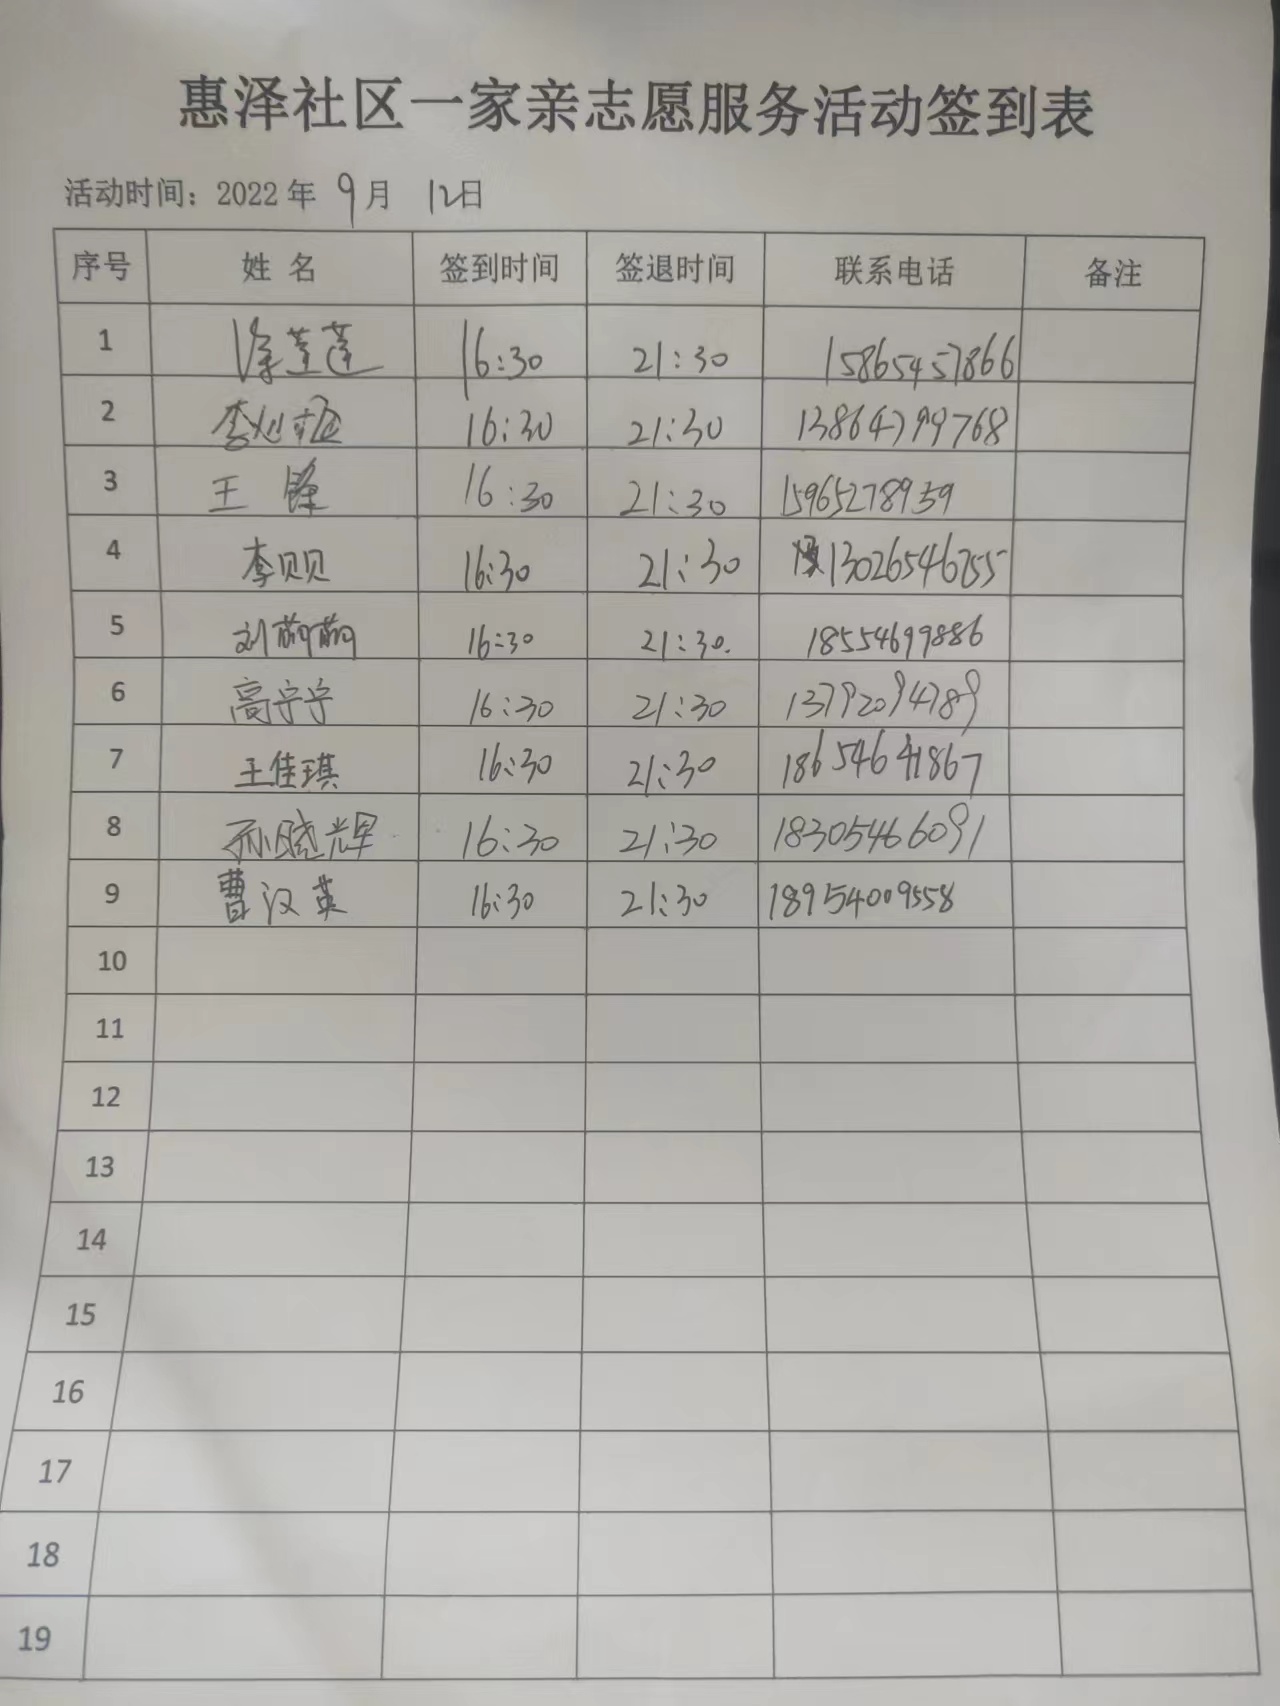 惠泽社区一家亲志愿服务活动签到表
活动时间：2022年 9月 12日
序号 姓 名 签到时间 签退时间 联系电话 备注
1 16:30 21:30 15865457866
2 16:30 21:30 13864799768
3 王 锋 16:30 21:30 15965278939
4 李贝贝 16:30 21:30 13026546755
5 刘萌萌 16:30 21:30. 18554699886
6 高宁宁 16:30 21:30 13792094789
7 王佳琪 16:30 21:30 18654641867
8 孙晓辉 16:30 21:30 18305466091
9 曹汉英 16:30 21:30 18954009558
10
11
12
13
14
15
16
17
18
19